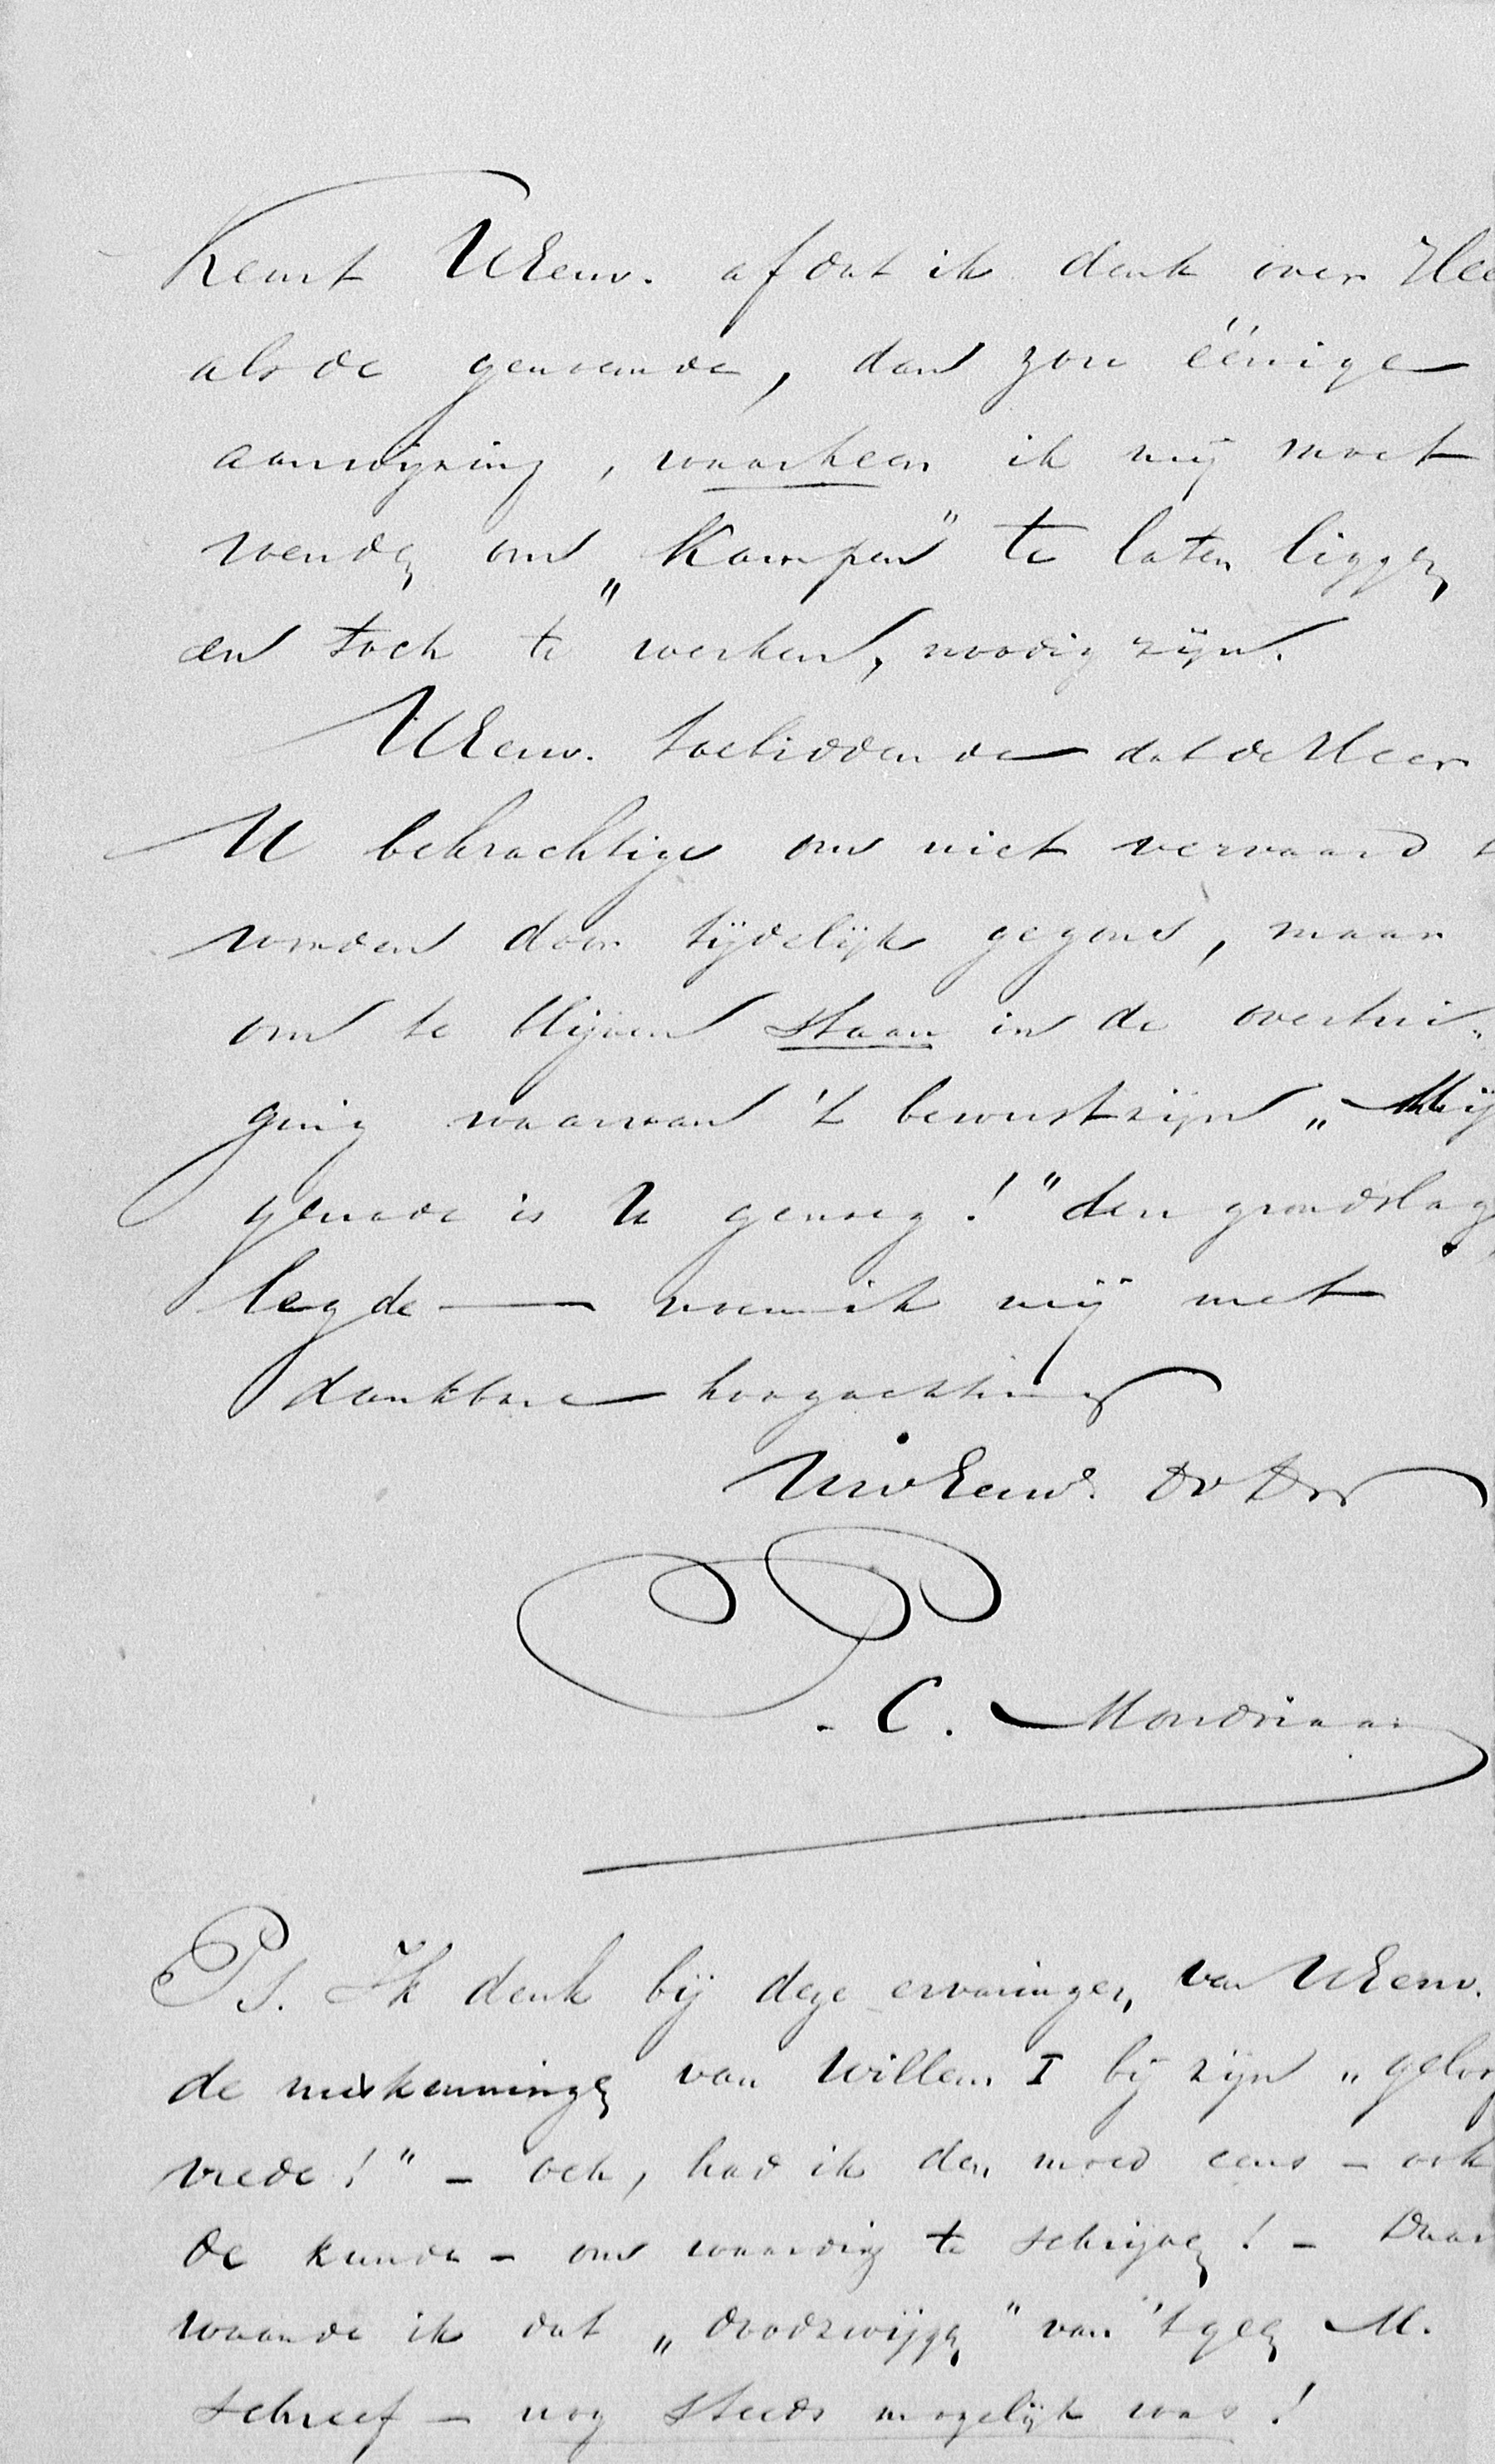 Keurt UEerw. af dat ik denk over Hee
als de genoemde, dan zou éénige
aanwijzing, waarheen ik mij moet
wenden om „Kampen" te laten liggen
en toch te werken, noodig zijn.
UEerw. toebiddende dat de Heer
U bekrachtige om niet vervaard t
worden door tijdelijk gegons, maar
om te blijven staan in de overtui-
ging waarvan 't bewustzijn „Mij
genade is U genoeg!" den grondslag
legde — noem ik mij met
dankbare hoogachting
UwEerw. Dv Dr
P. C. Mondriaan
PS. Ik denk bij deze ervaringen van UEerw.
de miskenningen van Willem I bij zijn „geloofs
vrede!" – och, had ik den moed eens – ook
de kunde – om waardig te schrijven! – Daar
waande ik dat „doodzwijgen" van 't geen M.
schreef – nog steeds mogelijk was!